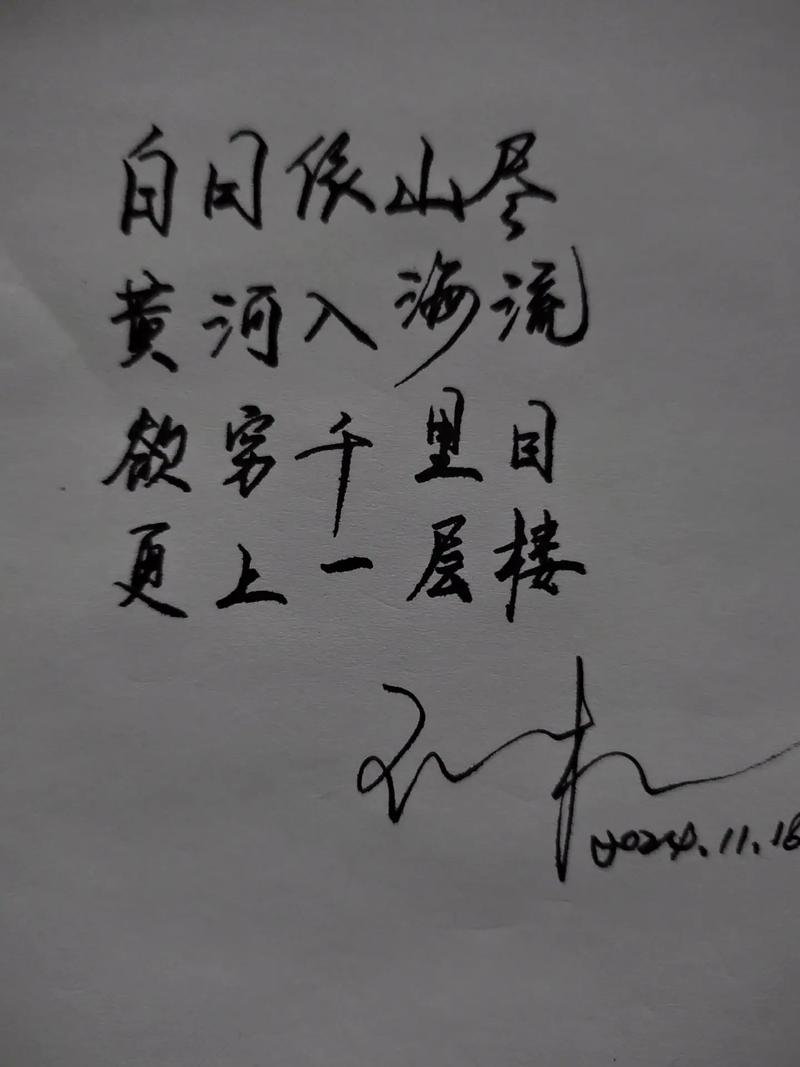 白日依山尽
黄河入海流
欲穷千里目
更上一层楼
2024.11.18